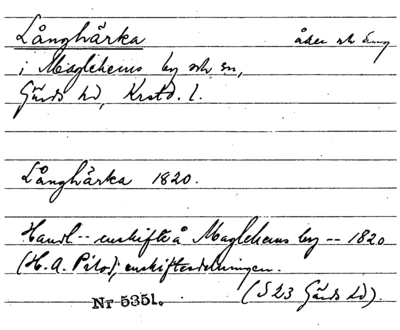 Långhårka åker och äng
i Maglehems by och sn,
Gärds hd, Krstd. l.
Långhårka 1820.
Handl-- enskifte å Maglehems by -- 1820
(H. A. Pilo); enskiftesdelningen.
(S 23 Gärds hd).
Nr 5351.